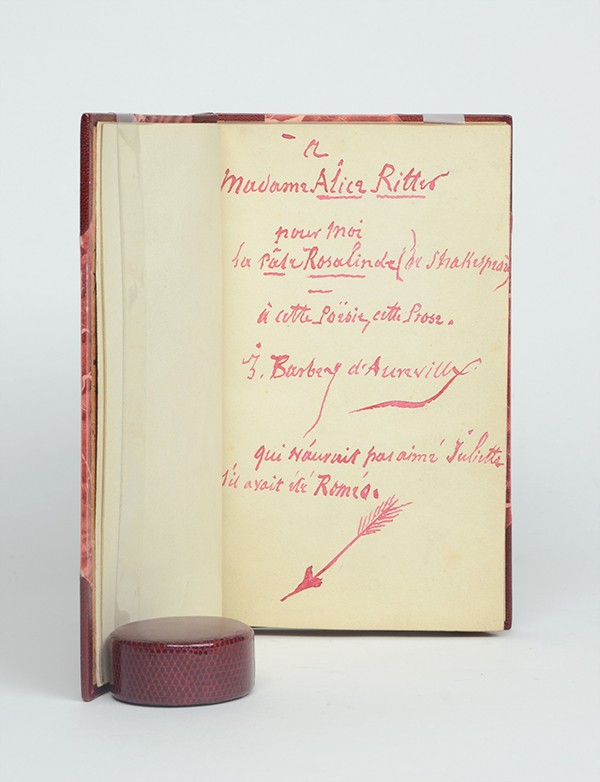 à
Madame Alice Ritter
pour moi
la pâle Rosalinde (de Shakespeare)
à cette Poësie, cette Prose.
J. Barbey d'Aurevilly
qui n'aurait pas aimé Juliette
s'il avait été Roméo.